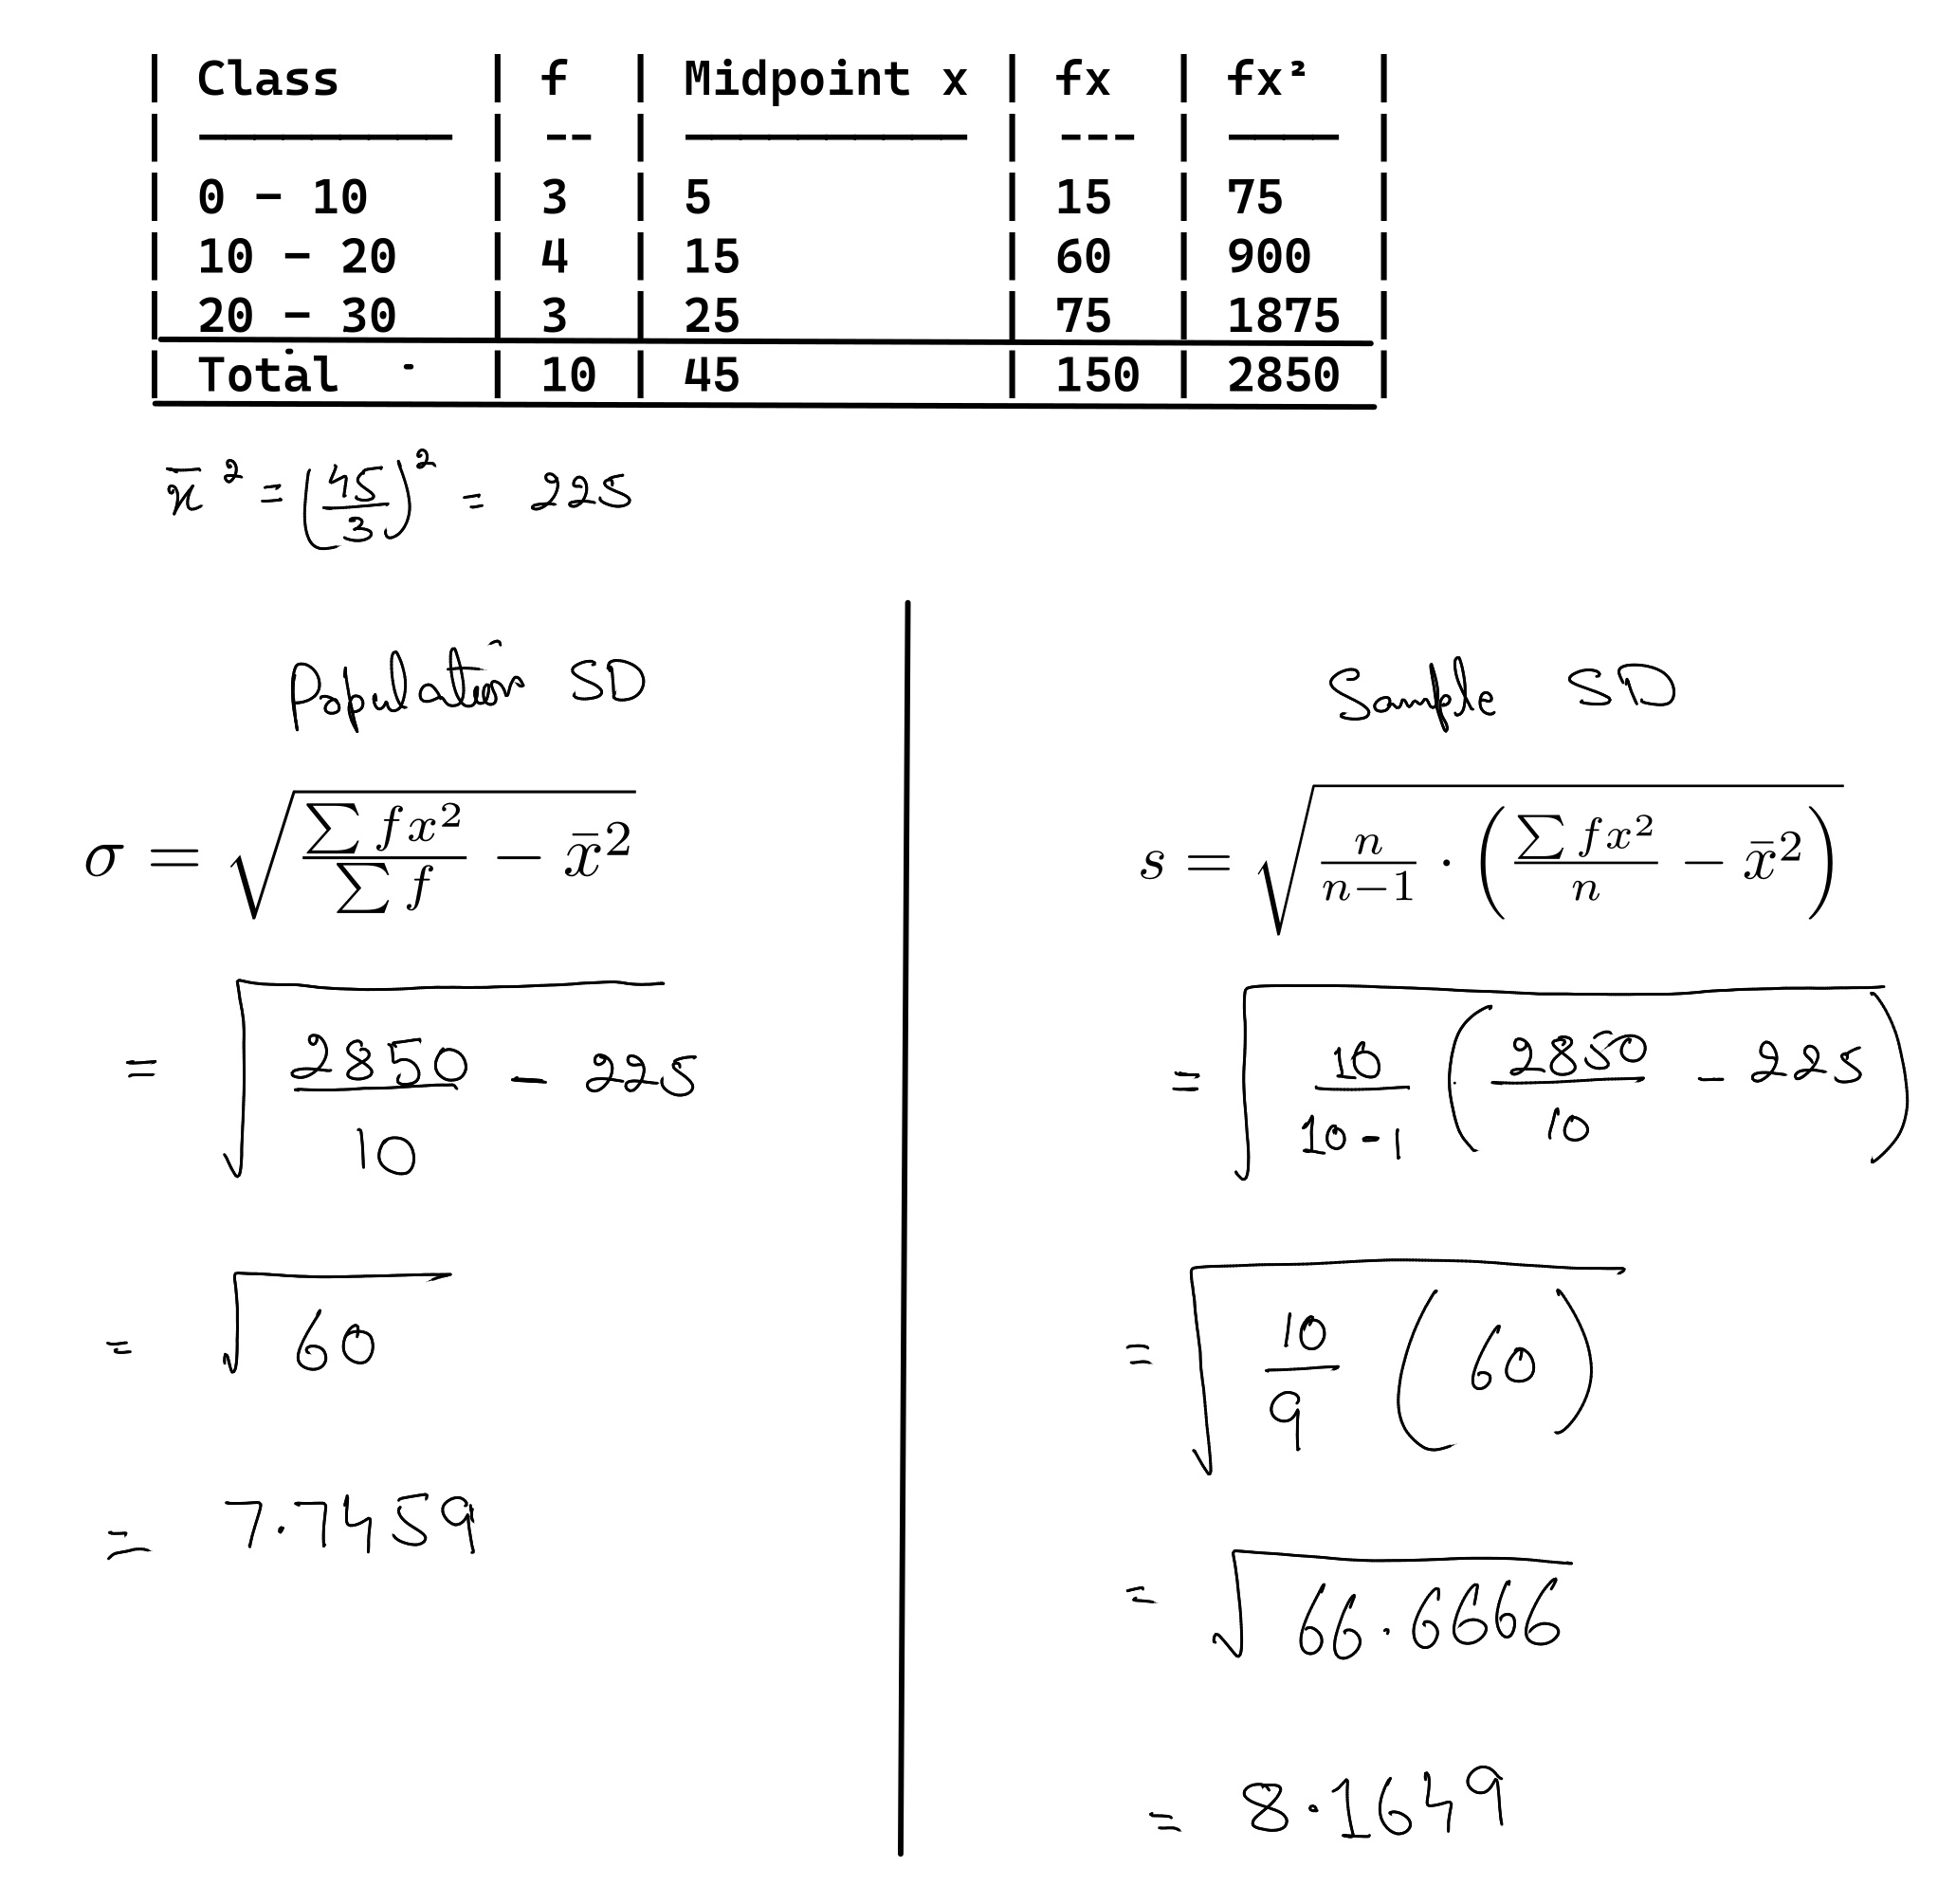 | Class | f | Midpoint x | fx | fx² |
| ––––––––– | -- | –––––––––– | --- | –––– |
| 0 – 10 | 3 | 5 | 15 | 75 |
| 10 – 20 | 4 | 15 | 60 | 900 |
| 20 – 30 | 3 | 25 | 75 | 1875 |
| Total | 10 | 45 | 150 | 2850 |
x̄² = (45/3)² = 225
Population SD
σ = √(∑fx²/∑f − x̄²)
= √(2850/10 − 225)
= √60
= 7.7459
Sample SD
s = √(n/(n−1) · (∑fx²/n − x̄²))
= √(10/(10-1) (2850/10 − 225))
= √(10/9 (60))
= √66.6666
= 8.1649